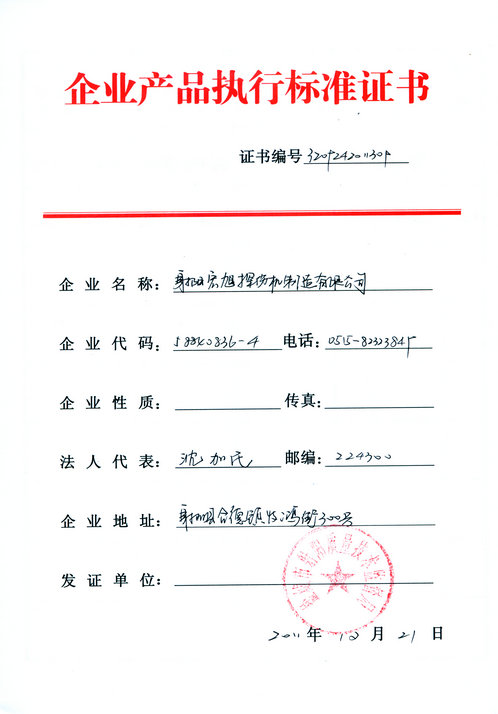 企业产品执行标准证书
证书编号 320924201130
企业名称：射阳宏旭探伤机制造有限公司
企业代码： 0836-4 电话：0515-82323845
企业性质： 传真：
法人代表：沈加民 邮编：224300
企业地址：射阳县合德镇 鸿街300号
发证单位：
2011年12月21日